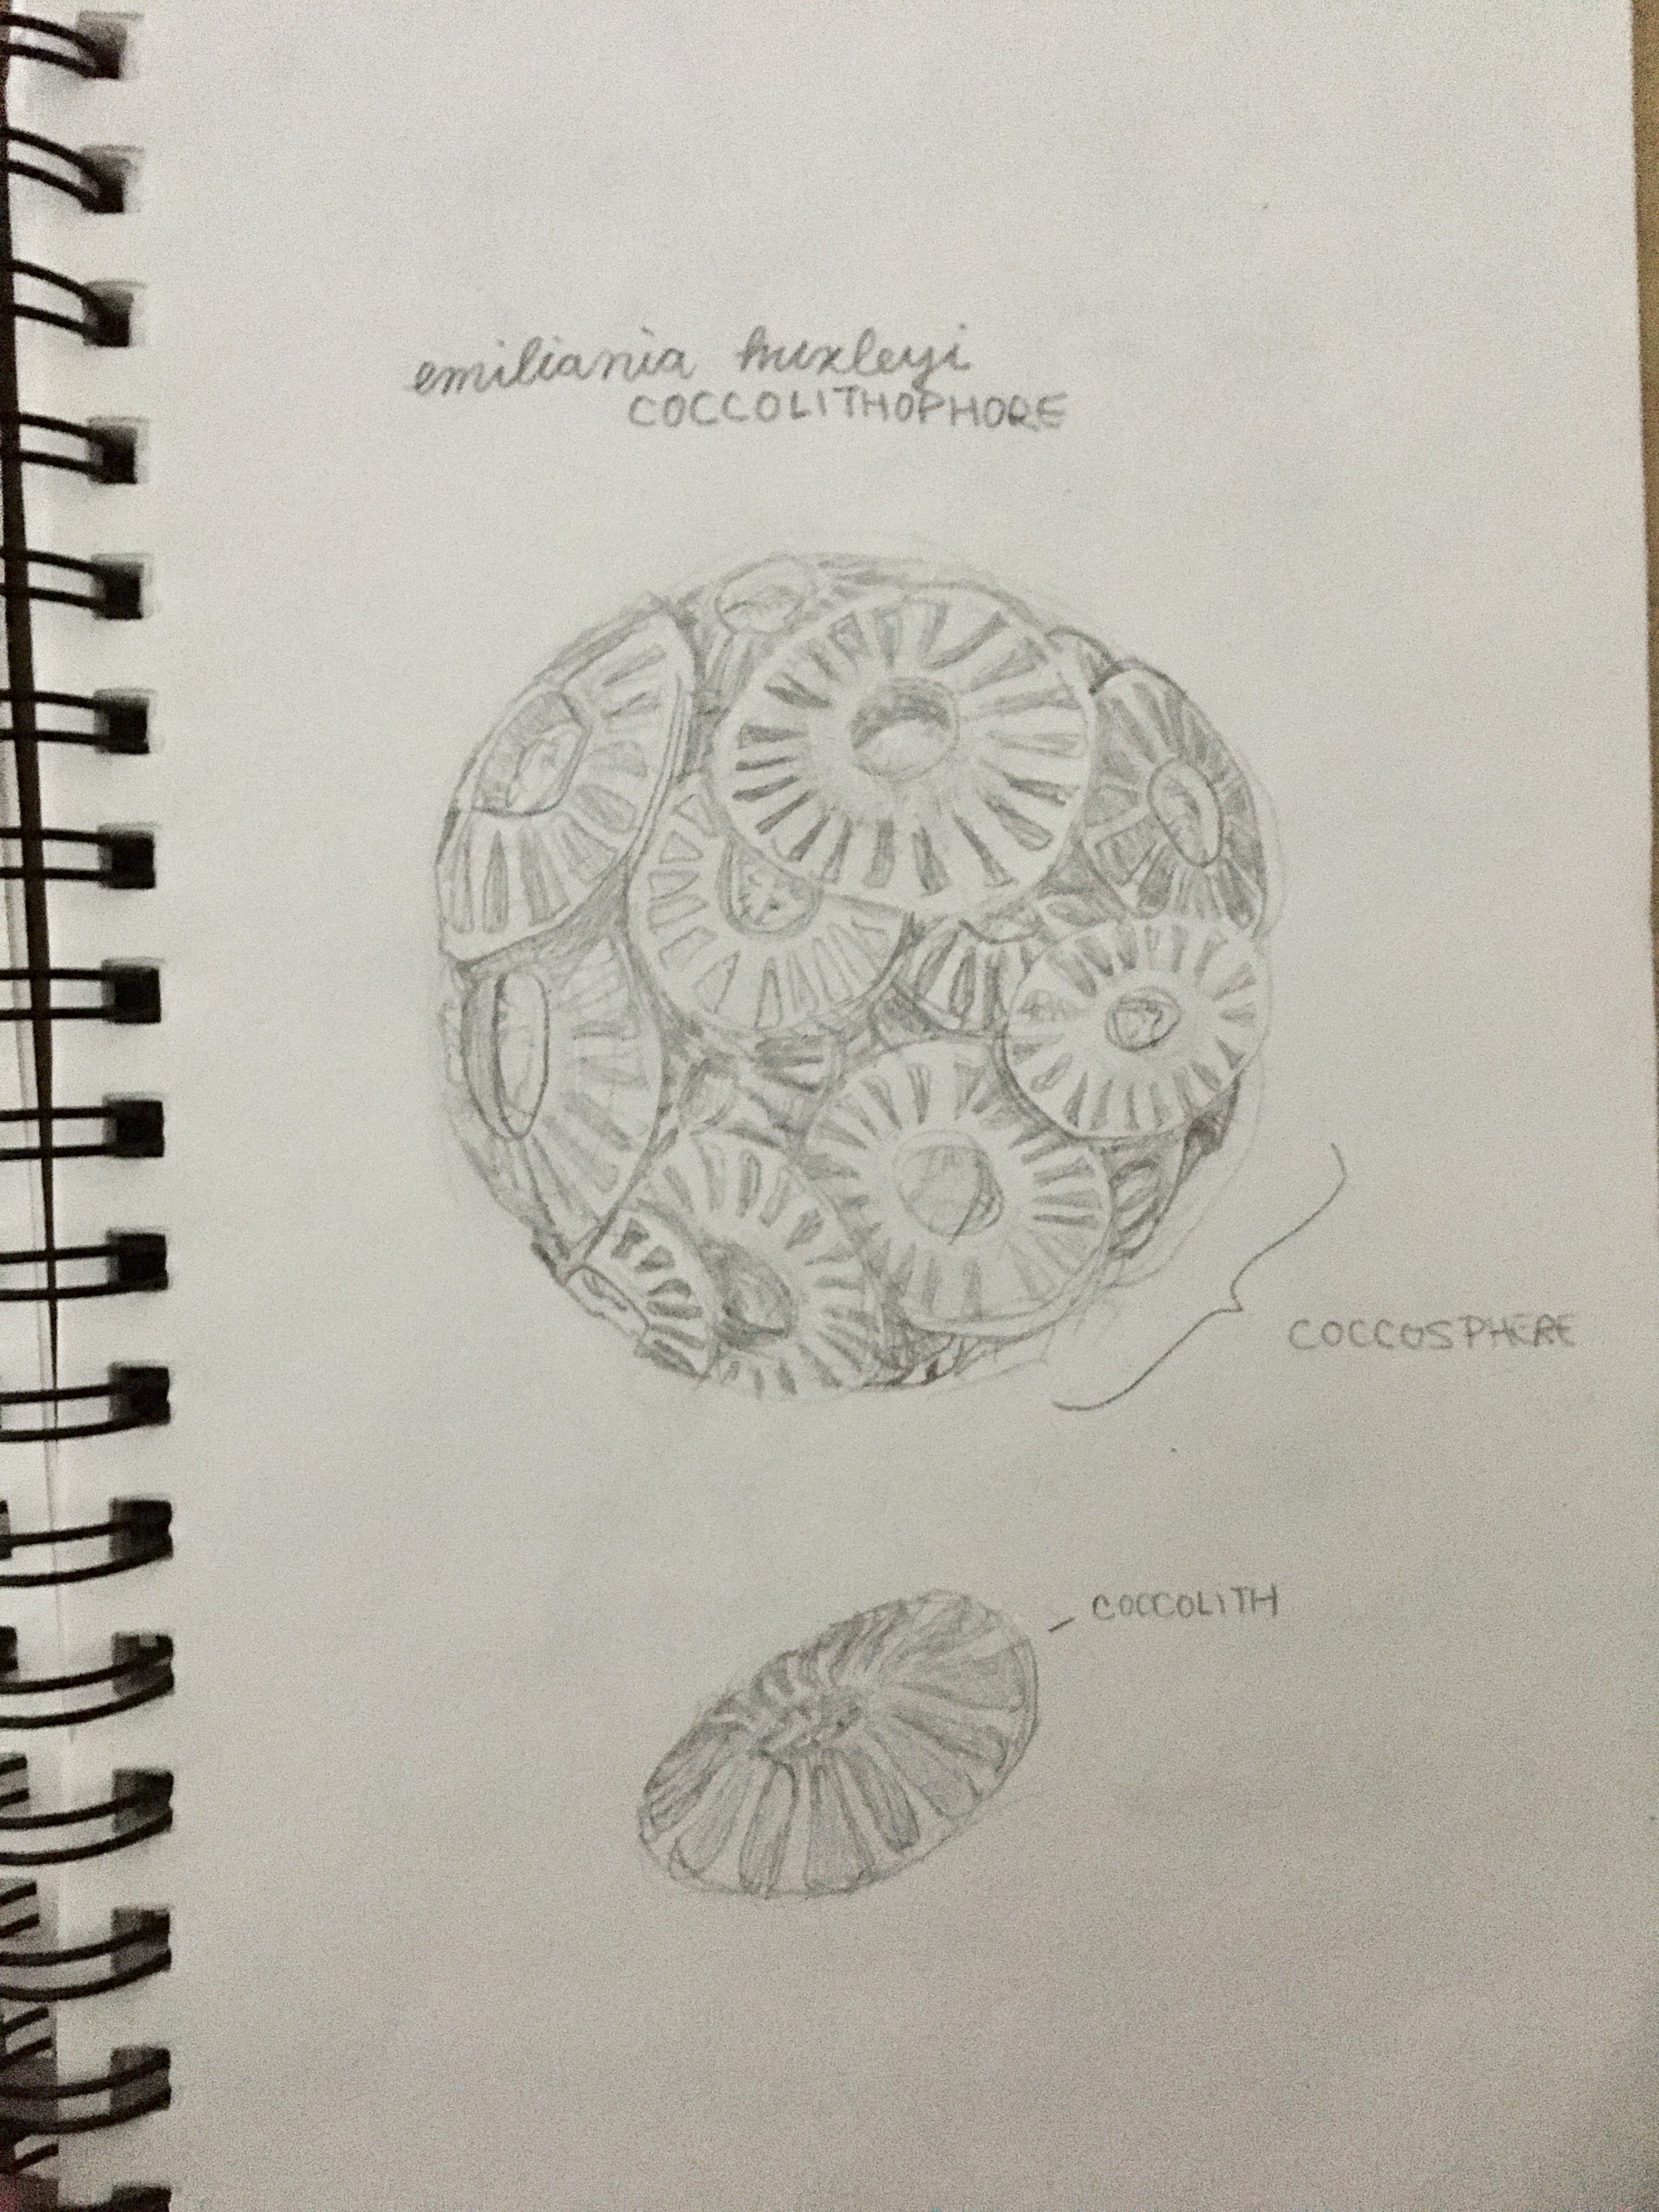 emiliania huxleyi
COCCOLITHOPHORE
COCCOSPHERE
COCCOLITH